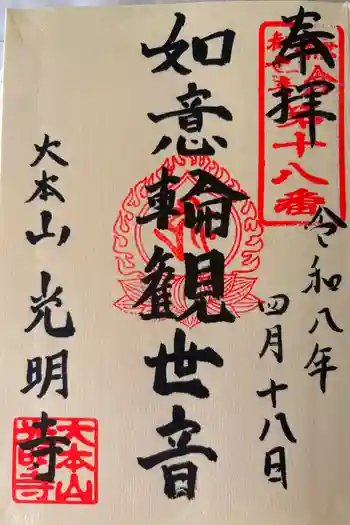 奉拝
第十八番
令和八年
四月十八日
如意輪観世音
大本山光明寺
大本山
光明寺